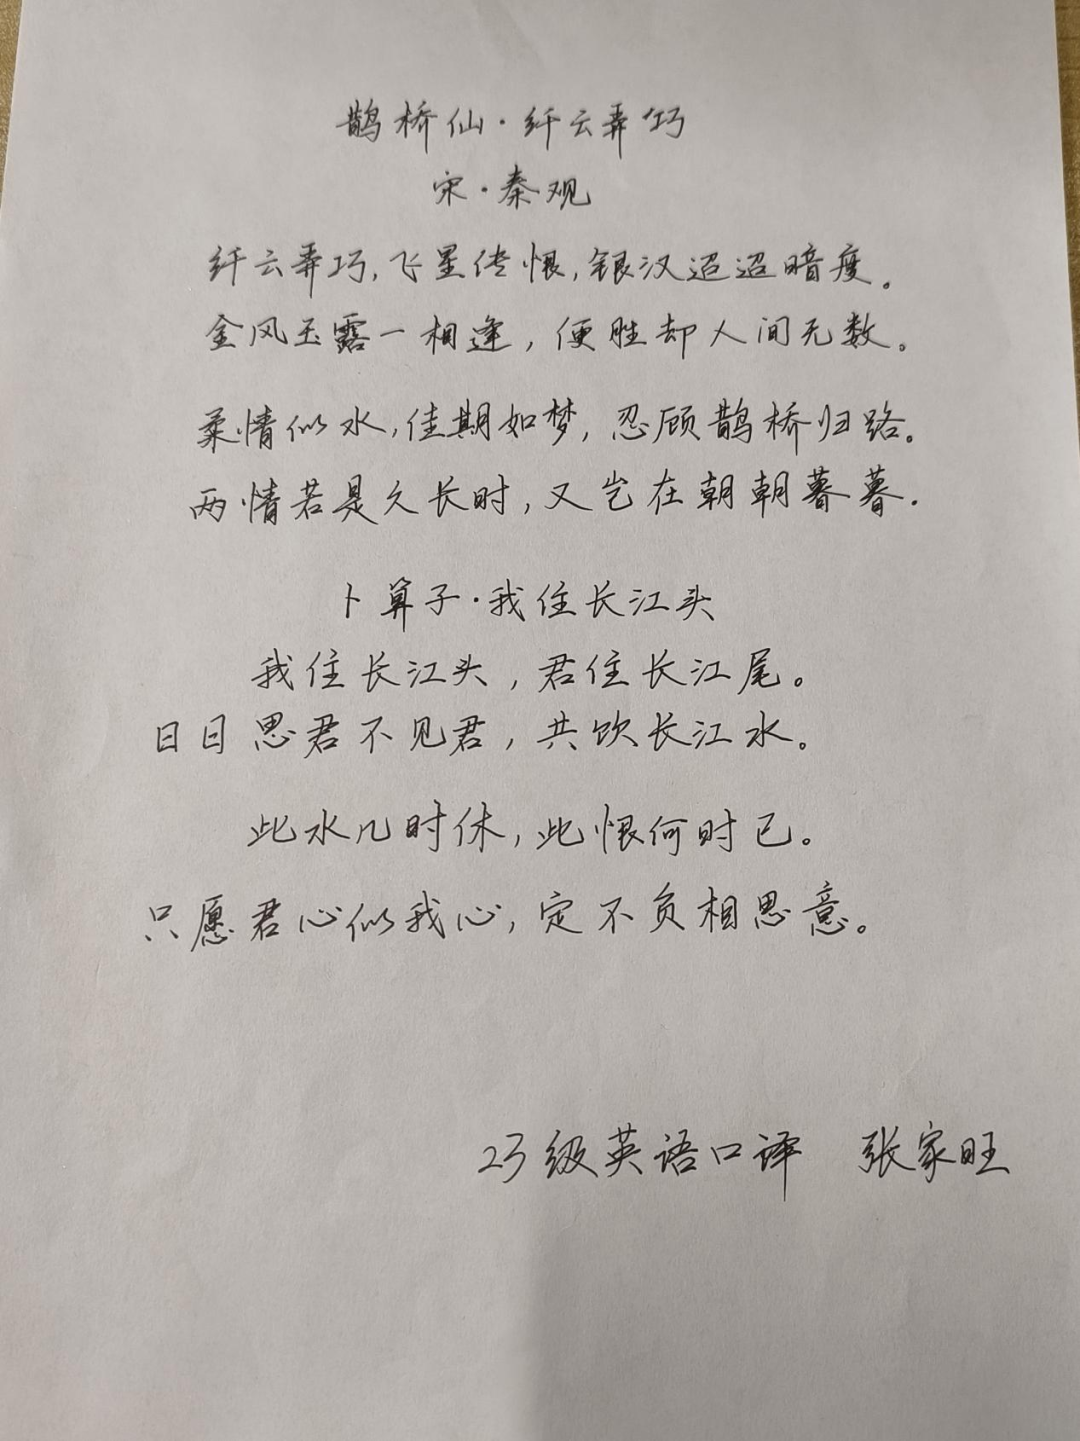 鹊桥仙·纤云弄巧
宋·秦观
纤云弄巧,飞星传恨,银汉迢迢暗度。
金风玉露一相逢,便胜却人间无数。
柔情似水,佳期如梦,忍顾鹊桥归路。
两情若是久长时,又岂在朝朝暮暮.
卜算子·我住长江头
我住长江头,君住长江尾。
日日思君不见君,共饮长江水。
此水几时休,此恨何时已。
只愿君心似我心,定不负相思意。
23级英语口译 张家旺